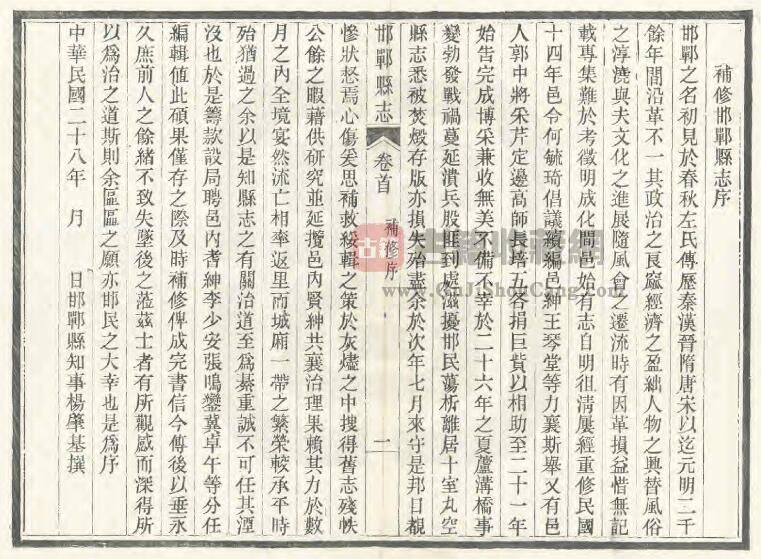 補修邯鄲縣志序
邯鄲之名初見於春秋左氏傳歷秦漢晉隋唐宋以迄元明二千
餘年間沿革不一其政治之良窳經濟之盈絀人物之興替風俗
之淳澆與夫文化之進展隨風會之遷流時有因革損益惜無記
載專集難於考徵明成化間邑始有志自明徂淸屢經重修民國
十四年邑令何毓琦倡議續編邑紳王琴堂等力襄斯舉又有邑
人郭中將采芹定邊高師長培五各捐巨貲以相助至二十一年
始告完成博采兼收無美不備不幸於二十六年之夏蘆溝橋事
變勃發戰禍蔓延潰兵股匪到處滋擾邯民蕩析離居十室九空
縣志悉被焚燬存版亦損失殆盡余於次年七月來守是邦目覩
邯鄲縣志 卷首 補修序 二
慘狀愁焉心傷爰思補救綏輯之策於灰燼之中搜得舊志殘帙
公餘之暇藉供研究並延攬邑內賢紳共襄治理果賴其力於數
月之內全境宴然流亡相率返里而城廂一帶之繁榮較承平時
殆猶過之余以是知縣志之有關治道至爲綦重誠不可任其湮
沒也於是籌款設局聘邑內耆紳李少安張鳴鑾冀卓午等分任
編輯值此碩果僅存之際及時補修俾成完書信今傳後以垂永
久庶前人之餘緒不致失墜後之蒞茲士者有所觀感而深得所
以爲治之道斯則余區區之願亦邯民之大幸也是爲序
中華民國二十八年 月 日邯鄲縣知事楊肇基撰
古籍
www.GuJiShouCang.com